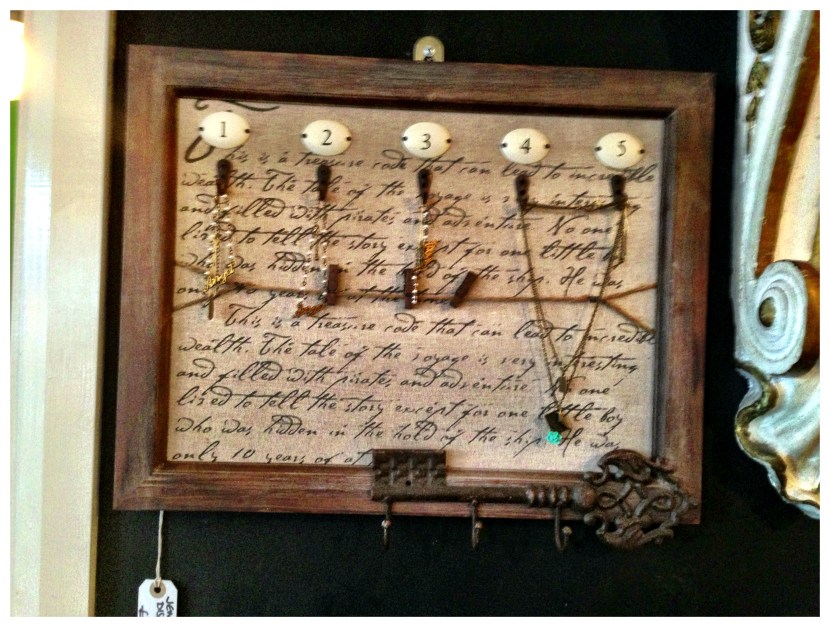 1 2 3 4 5
This is a treasure code that can lead to incredible
wealth. The tale of the voyage is very interesting
and filled with pirates and adventure. No one
lived to tell the story except for one little b
who was hidden in the hold of the ship. He was
only 10 years
This is a treasure code that can lead to incredible
wealth. The tale of the voyage is very interesting
and filled with pirates and adventure. No one
lived to tell the story except for one little boy
who was hidden in the hold of the ship. He was
only 10 years of at